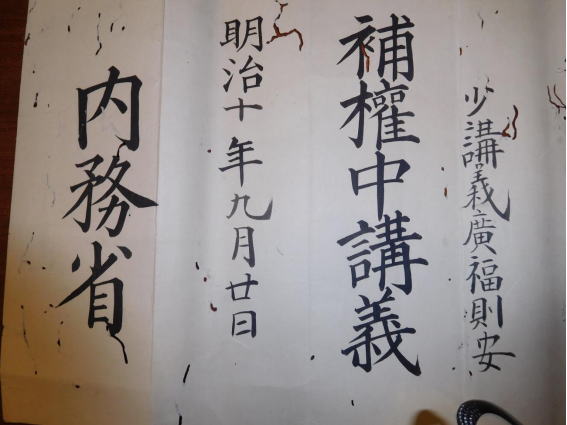 少講義廣福則安
補權中講義
明治十年九月廿日
内務省